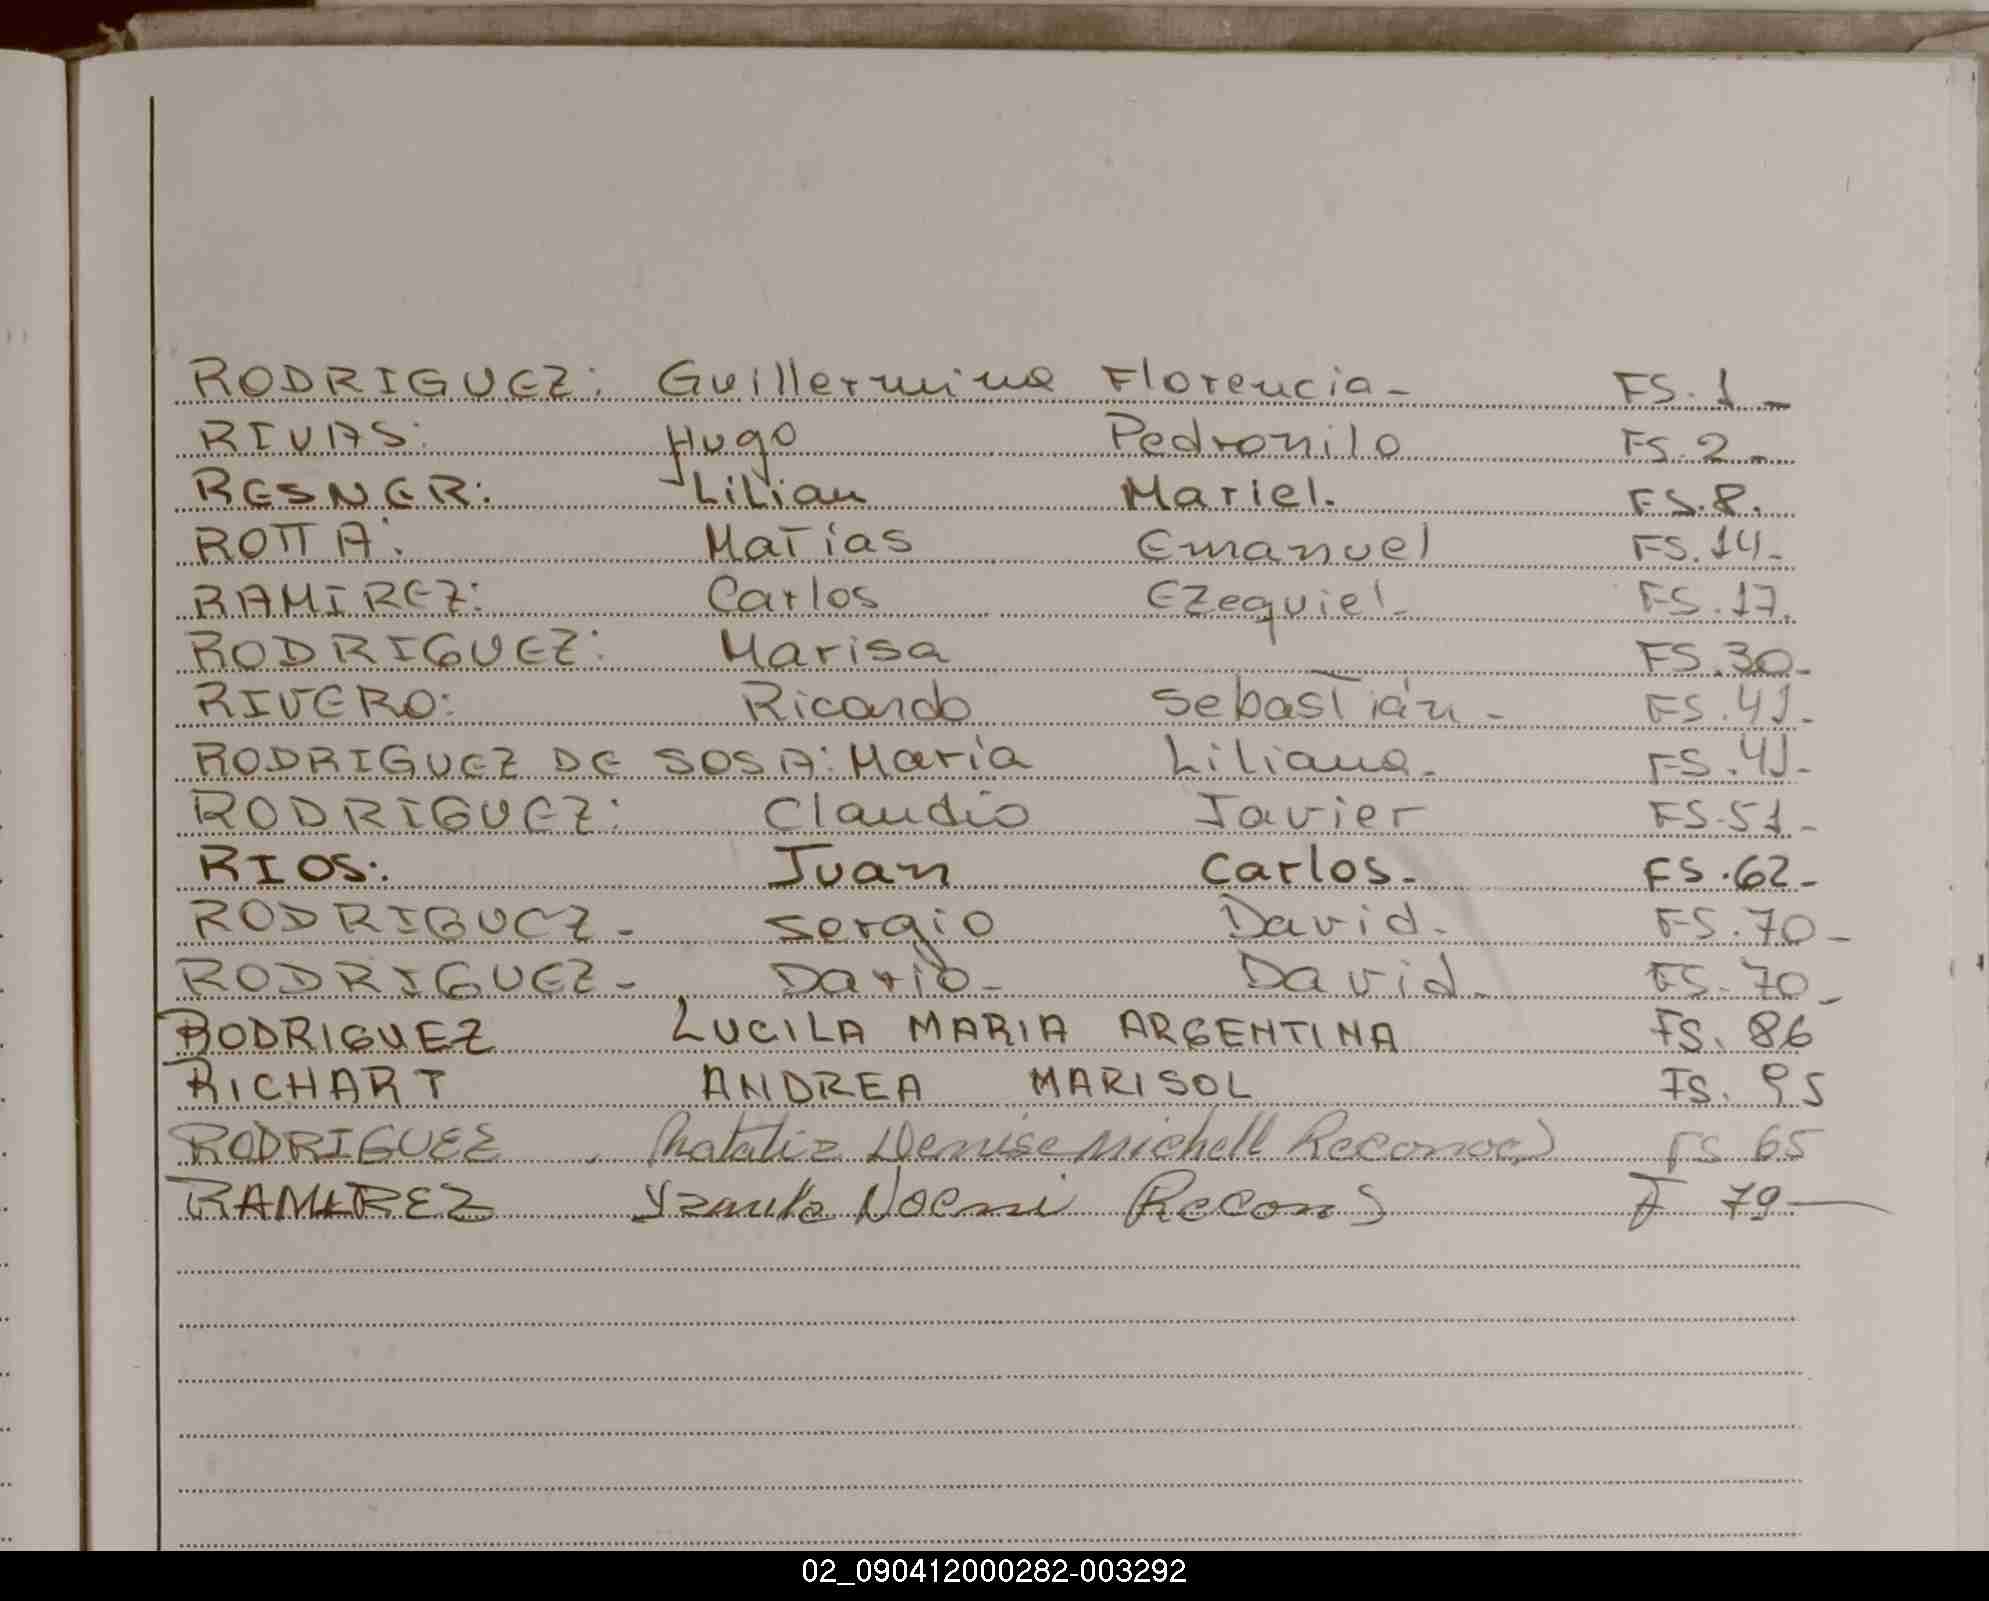 RODRIGUEZ: Guillermina Florencia- FS. 1-
RIVAS: Hugo Pedronilo FS. 2-
RESNER: Lilian Mariel. FS. 8.
ROTTA: Matías Emanuel FS. 14-
RAMIREZ: Carlos Ezequiel- FS. 17.
RODRIGUEZ: Marisa FS. 30-
RIVERO: Ricardo Sebastián- FS. 41-
RODRIGUEZ DE SOSA: María Liliana- FS. 41-
RODRIGUEZ: Claudio Javier FS. 51-
RIOS: Juan Carlos- FS. 62-
RODRIGUEZ- Sergio David- FS. 70-
RODRIGUEZ- Darío- David- FS. 70-
RODRIGUEZ LUCILA MARIA ARGENTINA FS. 86
RICHART ANDREA MARISOL FS. 95
RODRIGUEZ Natalia Denise Michell FS 65
RAMIREZ Noemi Recon F 79
02_090412000282-003292